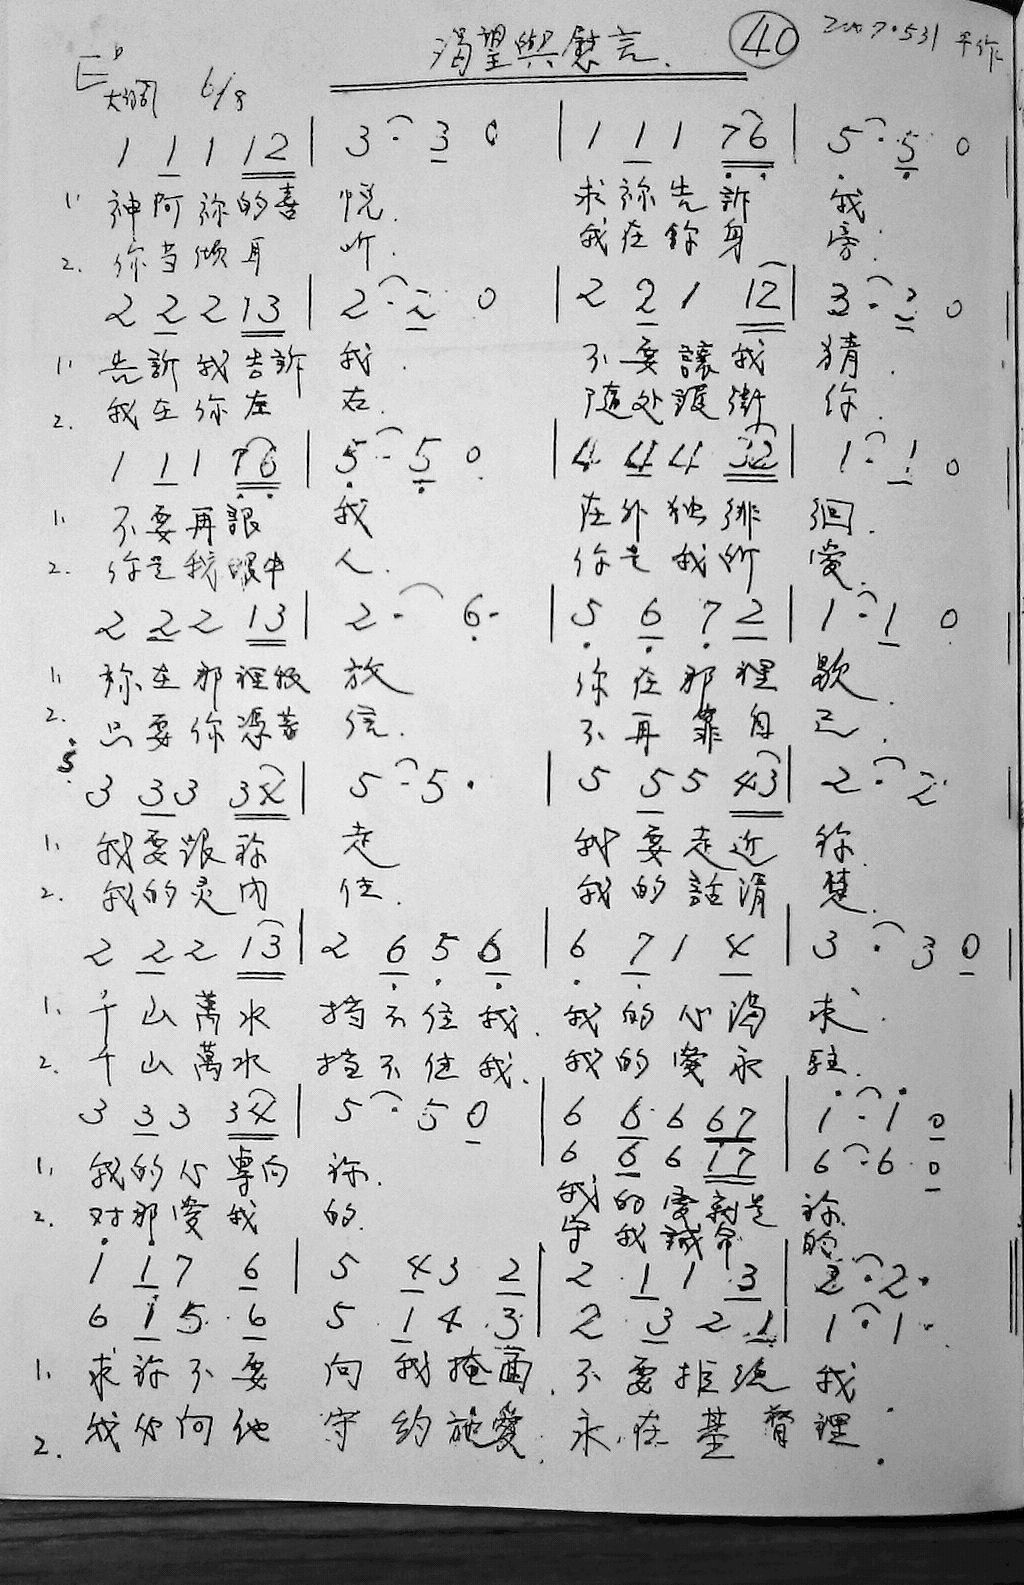 渴望與慰言. 40 2007.531 平作
E♭大調 6/8
1 1 1 12 | 3 · 3 0 | 1 1 1 76 | 5 · 5 0
1. 神阿祢的喜 悅. 求祢告訴 我
2. 你当傾耳 听. 我在你身 旁.
2 2 2 13 | 2 · 2 0 | 2 2 1 12 | 3 · 2 0
1. 告訴我告訴 我. 不要讓我 猜.
2. 我在你左 右. 隨处護衛 你.
1 1 1 76 | 5 · 5 0 | 4 4 4 32 | 1 · 1 0
1. 不要再讓 我 在外独徘 徊.
2. 你是我眼中 人. 你是我所 愛.
2 2 2 13 | 2 · 6 · | 5 6 7 2 | 1 · 1 0
1. 祢在那裡牧 放 你在那裡 歇.
2. 只要你憑著 信. 不再靠自 己.
3 3 3 34 | 5 · 5 · | 5 5 5 43 | 2 · 2
1. 我要跟祢 走 我要走近 祢.
2. 我的灵内 住. 我的話清 楚.
2 2 2 13 | 2 6 5 6 | 6 7 1 4 | 3 · 3 0
1. 千山萬水 擋不住我. 我的心渴 求.
2. 千山萬水 擋不住我. 我的愛永 駐.
3 3 3 34 | 5 · 5 0 | 6 6 6 67 | 1 · 1 0
6 6 6 17 | 6 · 6 0
1. 我的心專向 祢. 我的愛就是 祢.
2. 对那愛我 的. 守我誡命 的
1 1 7 6 | 5 4 3 2 | 2 1 1 3 | 2 · 2 ·
6 1 5 6 5 1 4 3 | 2 3 2 1 | 1 · 1 ·
1. 求祢不要 向我掩面. 不要拒绝 我
2. 我必向他 守約施愛. 永在基督 裡.